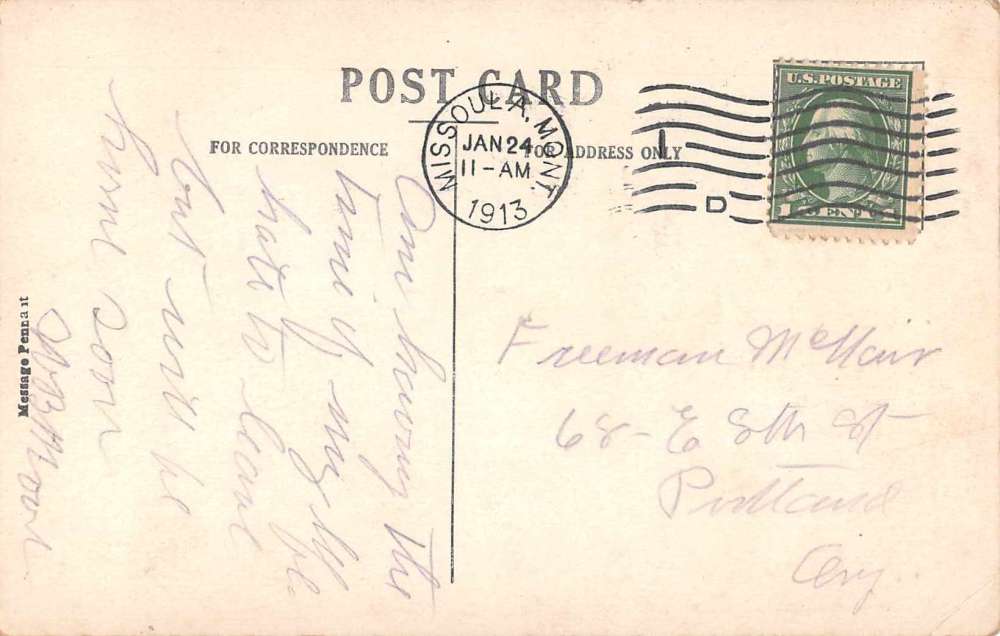 POST CARD
FOR CORRESPONDENCE
FOR ADDRESS ONLY
MISSOULA, MONT.
JAN 24
11-AM
1913
D
U.S. POSTAGE
1 CENT 1
Am having the
time of my life
hate to leave
but will be
home soon
Moore
Freeman McNair
68- E 8th St
Portland
Message Pennant